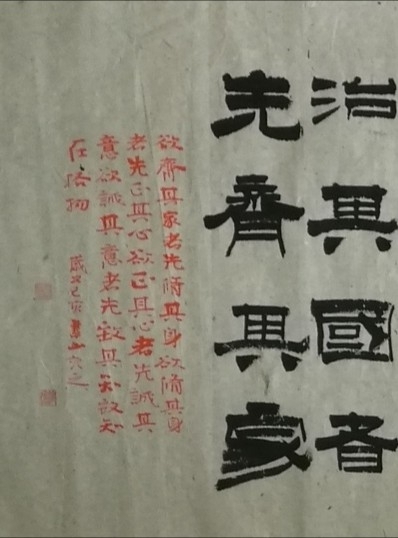 治其國者
先齊其家
欲齊其家者先脩其身欲脩其身
者先正其心欲正其心者先誠其
意欲誠其意者先致其知致知
在格物
歲次己亥